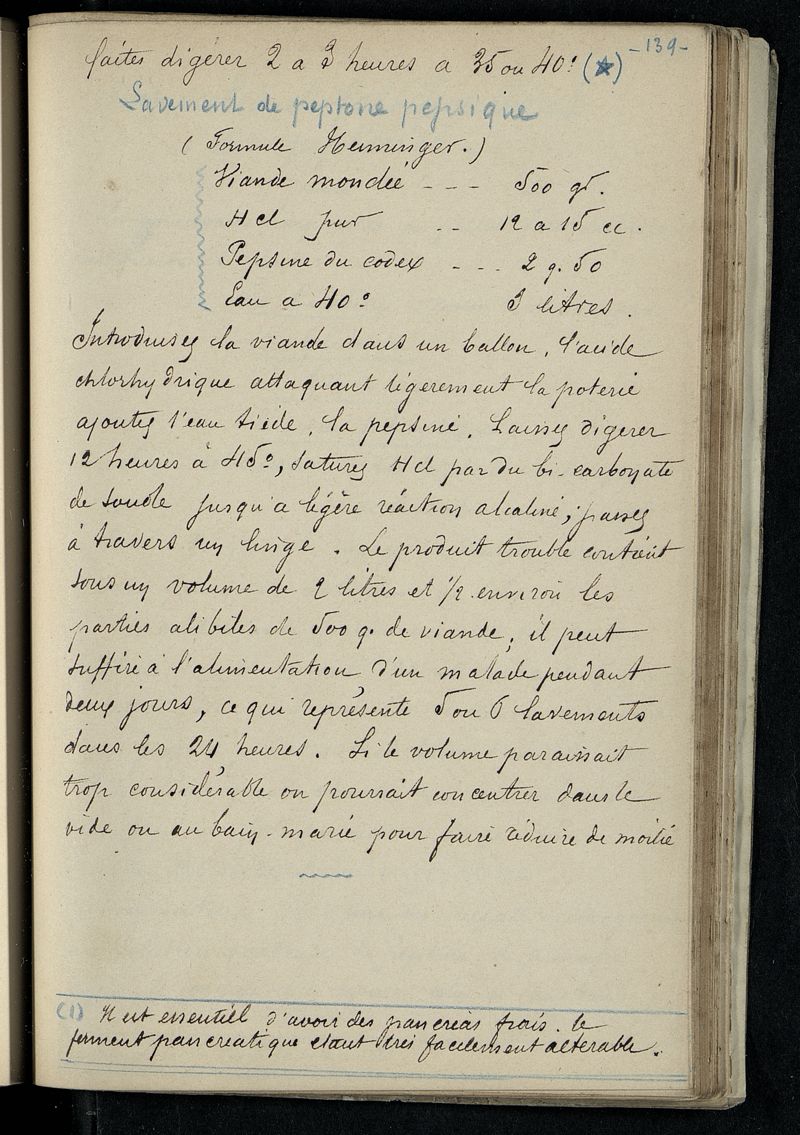 -139-
faites digérer 2 a 3 heures a 35 ou 40° (★)
Lavement de peptone pepsique
( Formule Henninger. )
Viande mondée - - - 500 gr.
Hcl pur .. 12 a 15 cc.
Pepsine du codex - - - 2 g. 50
Eau a 40° 3 litres.
Introduisez la viande dans un ballon, l'acide
chlorhydrique attaquant légerement la poterie
ajoutez l'eau tiède, la pepsine. Laissez digerer
12 heures à 45°, saturez Hcl par du bi-carbonate
de soude jusqu'a légère réaction alcaline; passez
à travers un linge. Le produit trouble contient
sous un volume de 2 litres et 1/2 environ les
parties alibiles de 500 g. de viande, il peut
suffire à l'alimentation d'un malade pendant
deux jours, ce qui représente 5 ou 6 lavements
dans les 24 heures. Si le volume paraissait
trop considérable on pourrait concentrer dans le
vide ou au bain-marie pour faire réduire de moitié
(1) Il est essentiel d'avoir des pancréas frais. le
ferment pancreatique etant très facilement altérable.